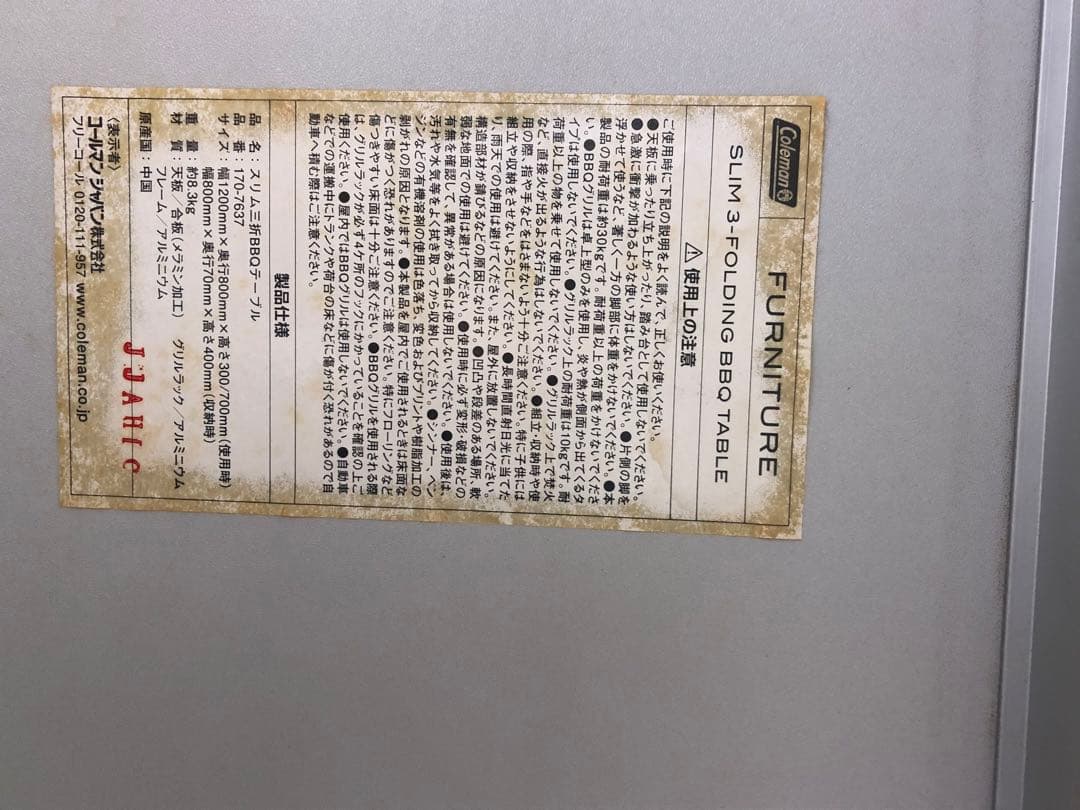 Coleman
FURNITURE
SLIM 3-FOLDING BBQ TABLE
⚠使用上の注意
ご使用時に下記の説明をよく読んで、正しくお使いください。
●天板に乗ったり立ち上がったり、踏み台として使用しないでください。
●急激に衝撃が加わるような使い方はしないでください。●片側の脚を
浮かせて使うなど、著しく一方の脚部に体重をかけないでください。●本
製品の耐荷重は約30kgです。耐荷重以上の荷重をかけないでくださ
い。●BBQグリルは卓上型のみを使用し、炎や熱が側面から出てくるタ
イプは使用しないでください。●グリルラック上の耐荷重は10kgです。耐
荷重以上の物を乗せて使用しないでください。●グリルラック上で焚火
など、直接火が出るような行為はしないでください。●組立・収納時や使
用の際、指や手などをはさまないよう十分ご注意ください。特に子供には
組立や収納をさせないようにしてください。●長時間直射日光に当てた
り、雨天での使用は避けてください。また、屋外に放置しないでください。
構造部材が錆びるなどの原因になります。●凹凸や段差のある場所、軟
弱な地面での使用は避けてください。●使用時に必ず変形・破損などの
有無を確認して、異常がある場合は使用しないでください。●使用後は、
汚れや水気等をよく拭き取ってから収納してください。●シンナー、ベン
ジンなどの有機溶剤の使用は色落ち、変色およびプリントや樹脂加工の
剥がれの原因となります。●本製品を屋内でご使用されるときは床面な
どに傷がつく恐れがありますのでご注意ください。特にフローリングなど
傷つきやすい床面は十分ご注意ください。●BBQグリルを使用される際
は、グリルラックが必ず4ケ所のフックにかかっていることを確認の上ご
使用ください。●屋内ではBBQグリルは使用しないでください。●自動車
などでの運搬中にトランクや荷台の床などに傷が付く恐れがあるので自
動車へ積む際はご注意ください。
製品仕様
品 名:スリム三折BBQテーブル
品 番:170-7637
サイズ:幅1200mm×奥行800mm×高さ300/700mm(使用時)
幅800mm×奥行70mm×高さ400mm(収納時)
重 量:約8.3kg
材 質:天板/合板(メラミン加工) グリルラック/アルミニウム
フレーム/アルミニウム
原産国:中国
〈表示者〉
コールマン ジャパン株式会社
フリーコール 0120-111-957 www.coleman.co.jp